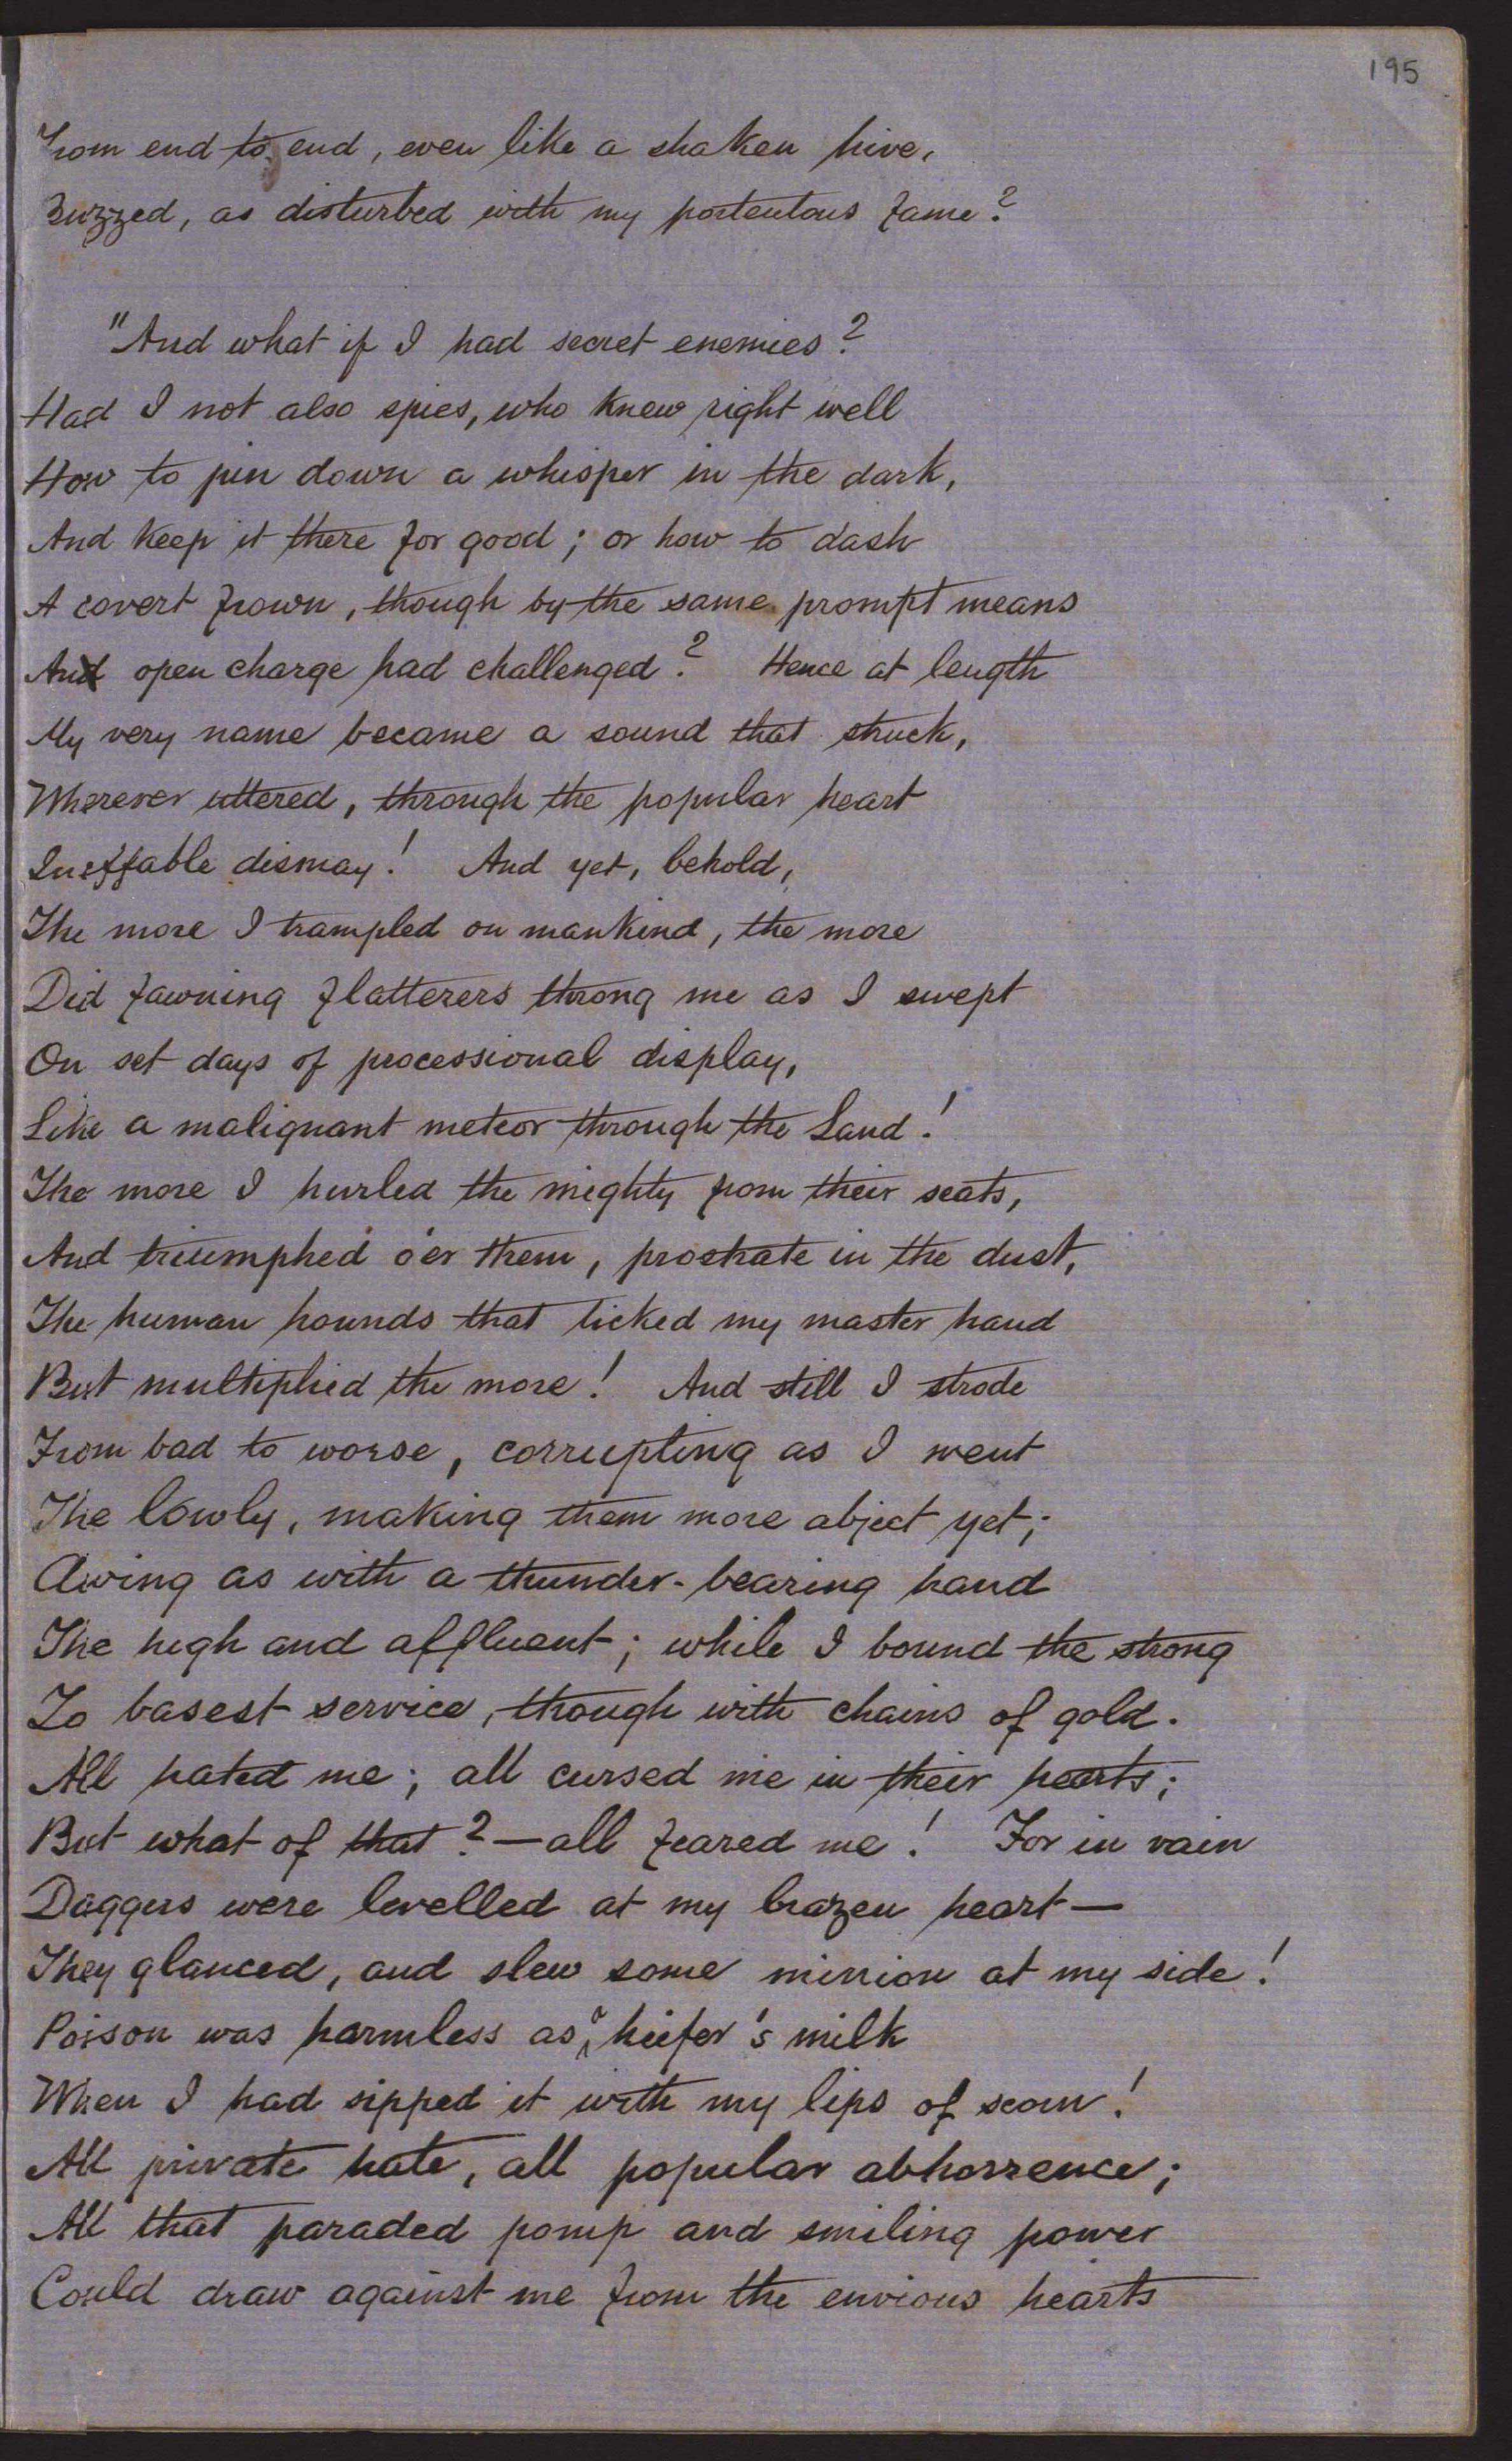 195
From end to end, even like a shaken hive,
Buzzed, as disturbed with my portentous fame?
"And what if I had secret enemies?
Had I not also spies, who knew right well
How to pin down a whisper in the dark,
And keep it there for good; or how to dash
A covert frown, though by the same prompt means
An open charge had challenged? Hence at length
My very name became a sound that struck,
Wherever uttered, through the popular heart
Ineffable dismay! And yet, behold,
The more I trampled on mankind, the more
Did fawning flatterers throng me as I swept
On set days of processional display,
Like a malignant meteor through the Land!
The more I hurled the mighty from their seats,
And triumphed o'er them, prostrate in the dust,
The human hounds that licked my master hand
But multiplied the more! And still I strode
From bad to worse, corrupting as I went
The lowly, making them more abject yet;
Awing as with a thunder-bearing hand
The high and affluent; while I bound the strong
To basest service, though with chains of gold.
All hated me; all cursed me in their hearts;
But what of that?—all feared me! For in vain
Daggers were levelled at my brazen heart—
They glanced, and slew some minion at my side!
Poison was harmless as a heifer's milk
When I had sipped it with my lips of scorn!
All private hate, all popular abhorrence;
All that paraded pomp and smiling power
Could draw against me from the envious hearts